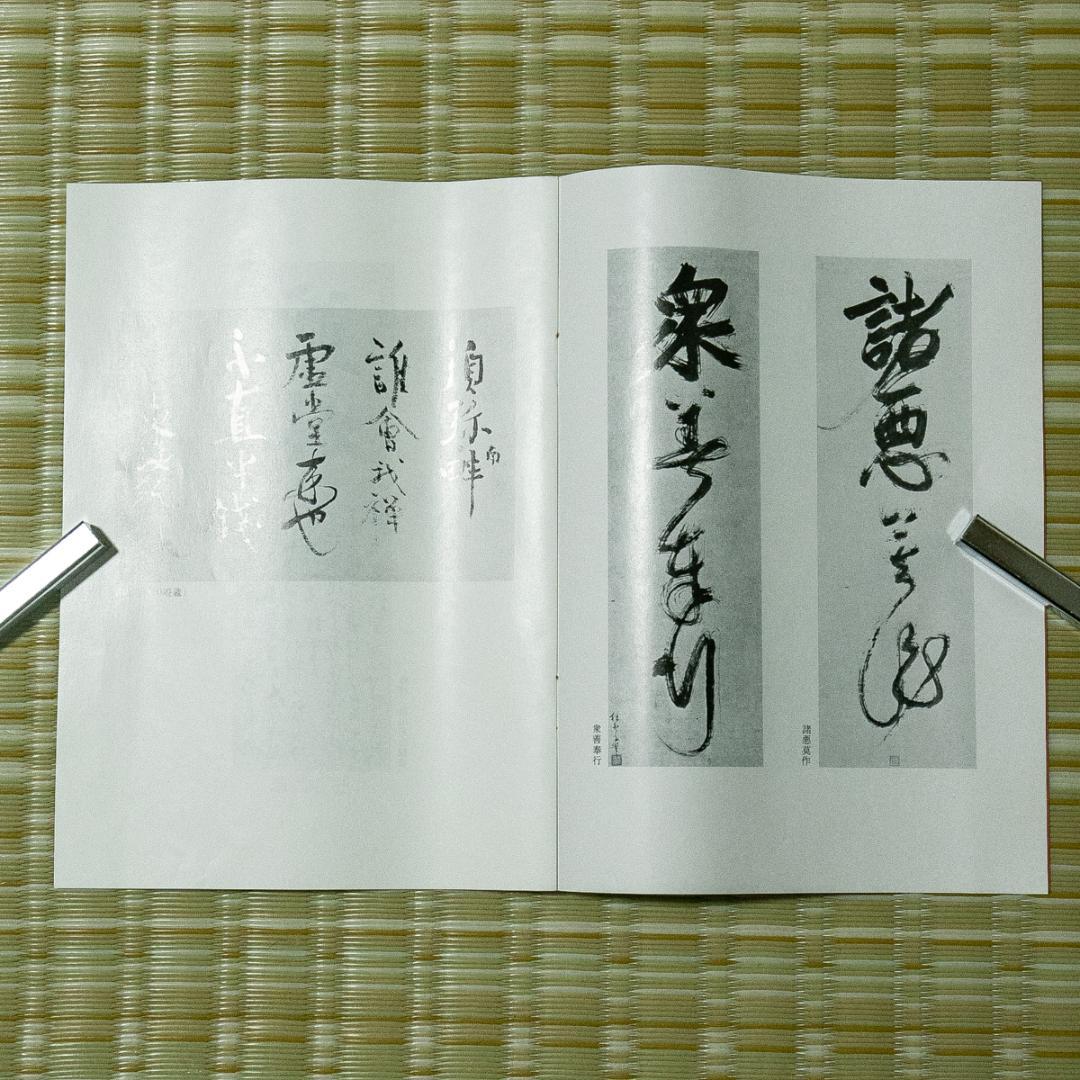 諸悪莫作
諸悪莫作
衆善奉行
衆善奉行
須弥南畔
誰會我禅
虚堂来也
不直半銭